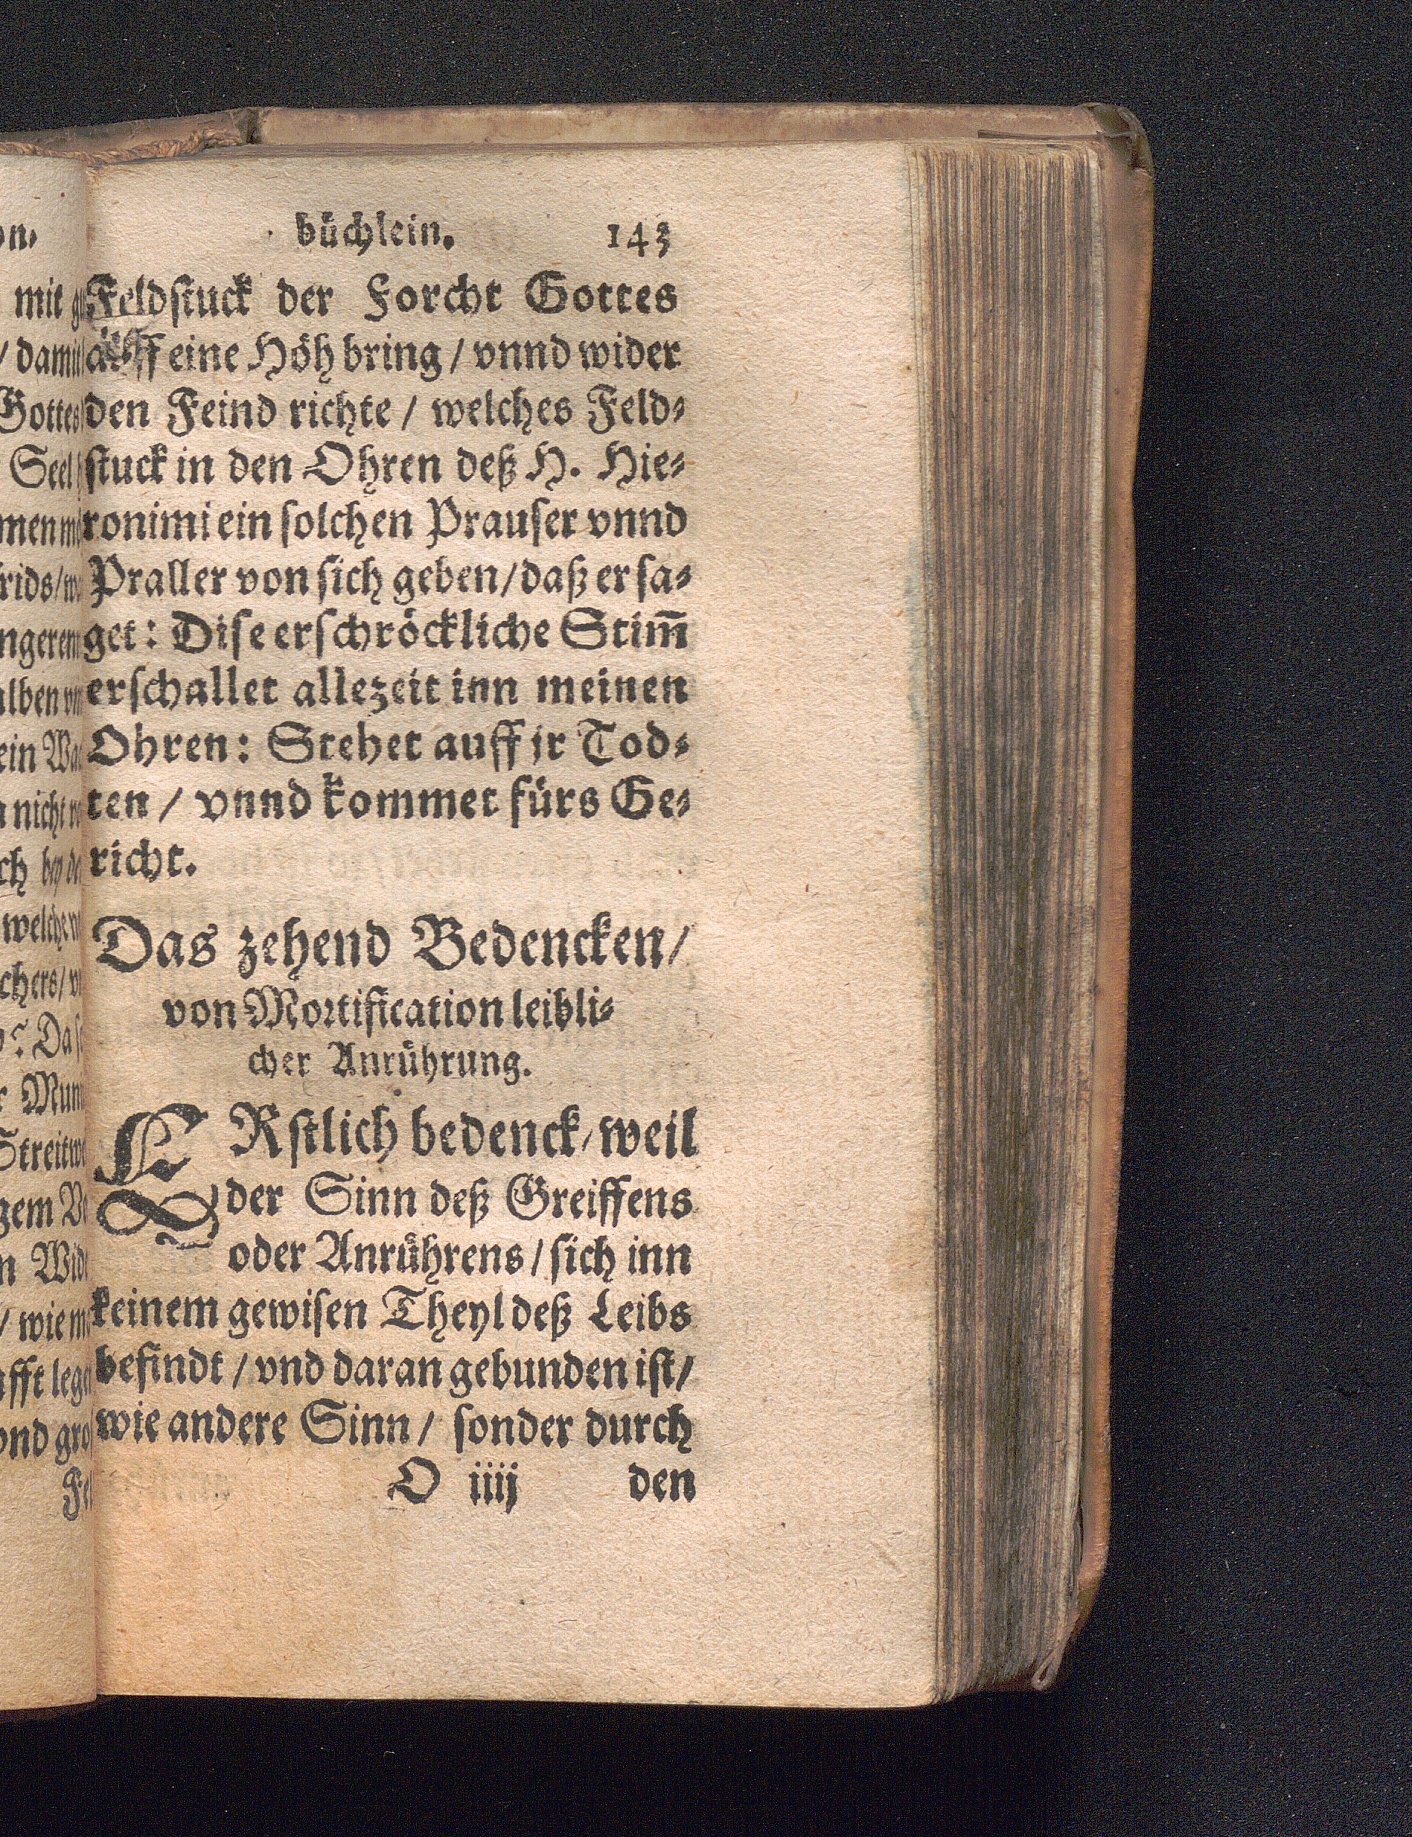 büchlein. 143
Feldstuck der Forcht Gottes
auff eine Höh bring / vnnd wider
den Feind richte / welches Feld-
stuck in den Ohren deß H. Hie-
ronimi ein solchen Prauser vnnd
Praller von sich geben / daß er sa-
get: Dise erschröckliche Stim̅
erschallet allezeit inn meinen
Ohren: Stehet auff jr Tod-
ten / vnnd kommet fürs Ge-
richt.
Das zehend Bedencken /
von Mortification leibli-
cher Anrührung.
ERstlich bedenck / weil
der Sinn deß Greiffens
oder Anrührens / sich inn
keinem gewisen Theyl deß Leibs
befindt / vnd daran gebunden ist /
wie andere Sinn / sonder durch
O iiij den